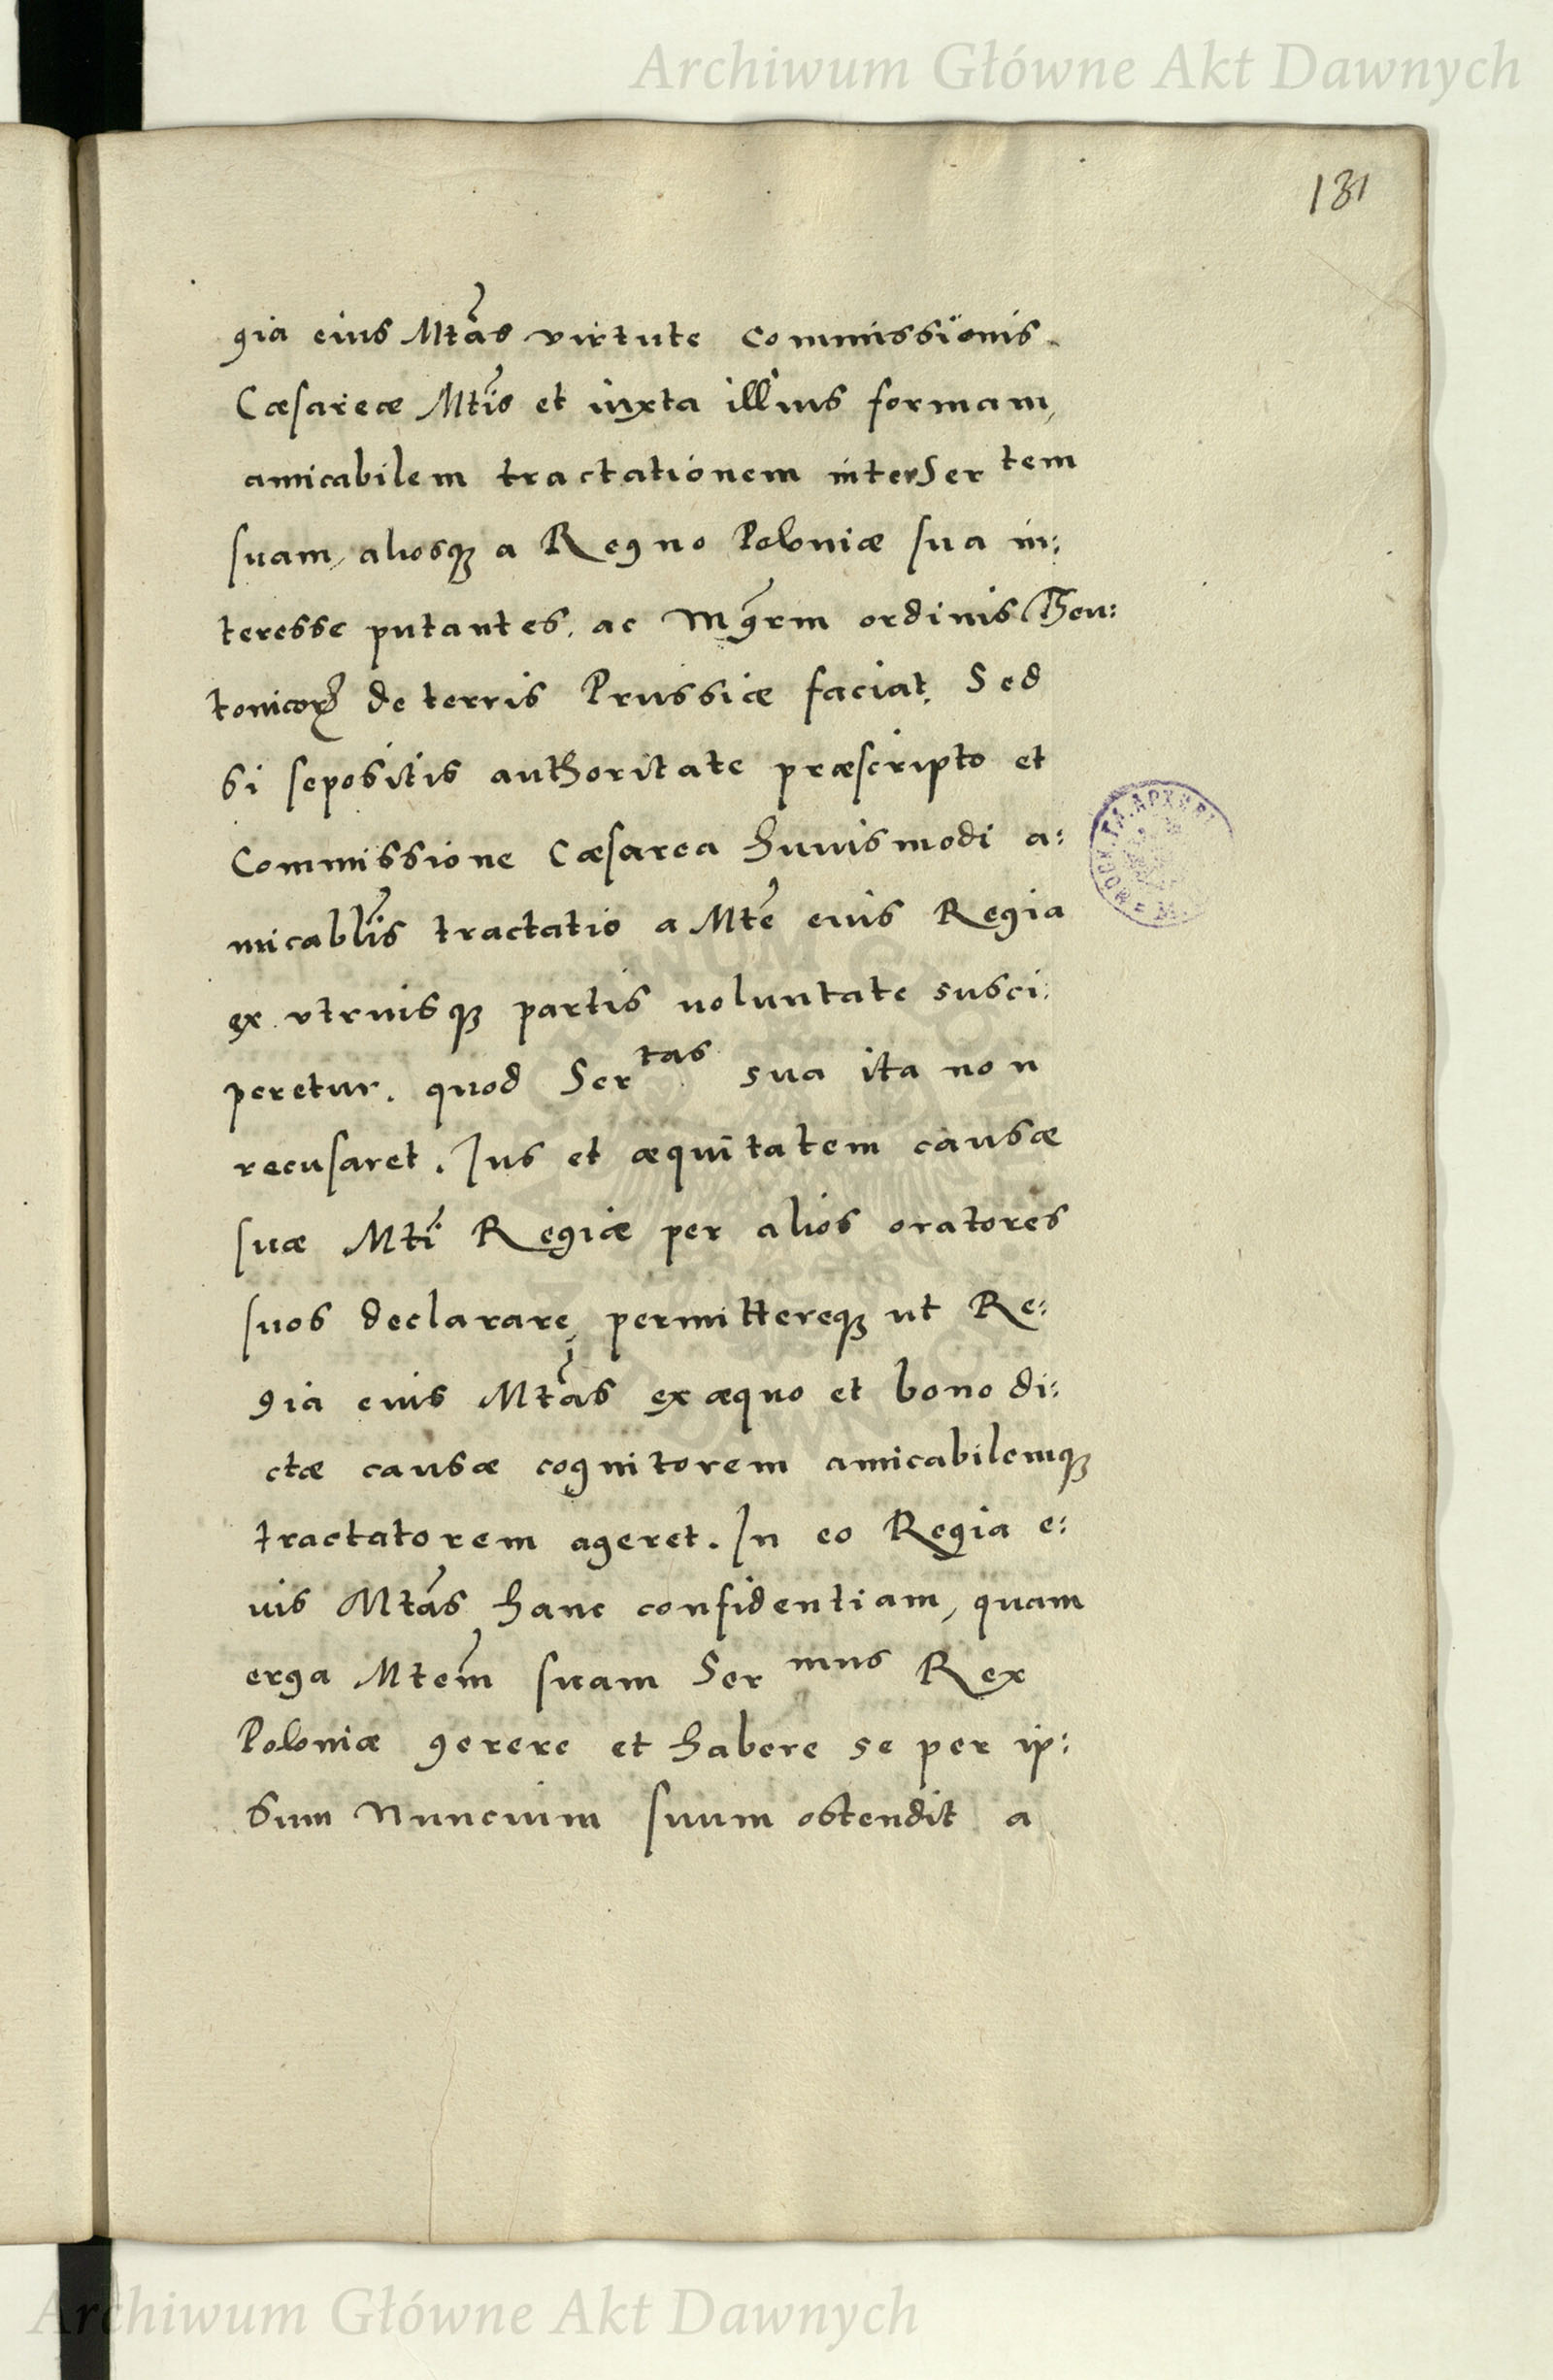 Archiwum Główne Akt Dawnych
131
gia eius Mtas virtute commissionis
Cæsareæ Mtis et iuxta illius formam,
amicabilem tractationem inter Sertem
suam, aliosq; a Regno Poloniæ sua in:
teresse putantes, ac Mgrm ordinis Theu:
tonicorꝝ de terris Prussiæ faciat. Sed
si sepositis authoritate præscripto et
Commissione Cæsarea huiusmodi a:
micablis tractatio a Mte eius Regia
ex utriusq; partis uoluntate susci:
peretur. quod Sertas sua ita non
recusaret. Ius et æquitatem causæ
suæ Mti Regiæ per alios oratores
suos declarare, permittereq; ut Re:
gia eius Mtas ex æquo et bono di:
ctæ causæ cognitorem amicabilemq;
tractatorem ageret. In eo Regia e:
ius Mtas hanc confidentiam, quam
erga Mtem suam Sermus Rex
Poloniæ gerere et habere se per ip:
sum Nuncium suum ostendit a
Archiwum Główne Akt Dawnych